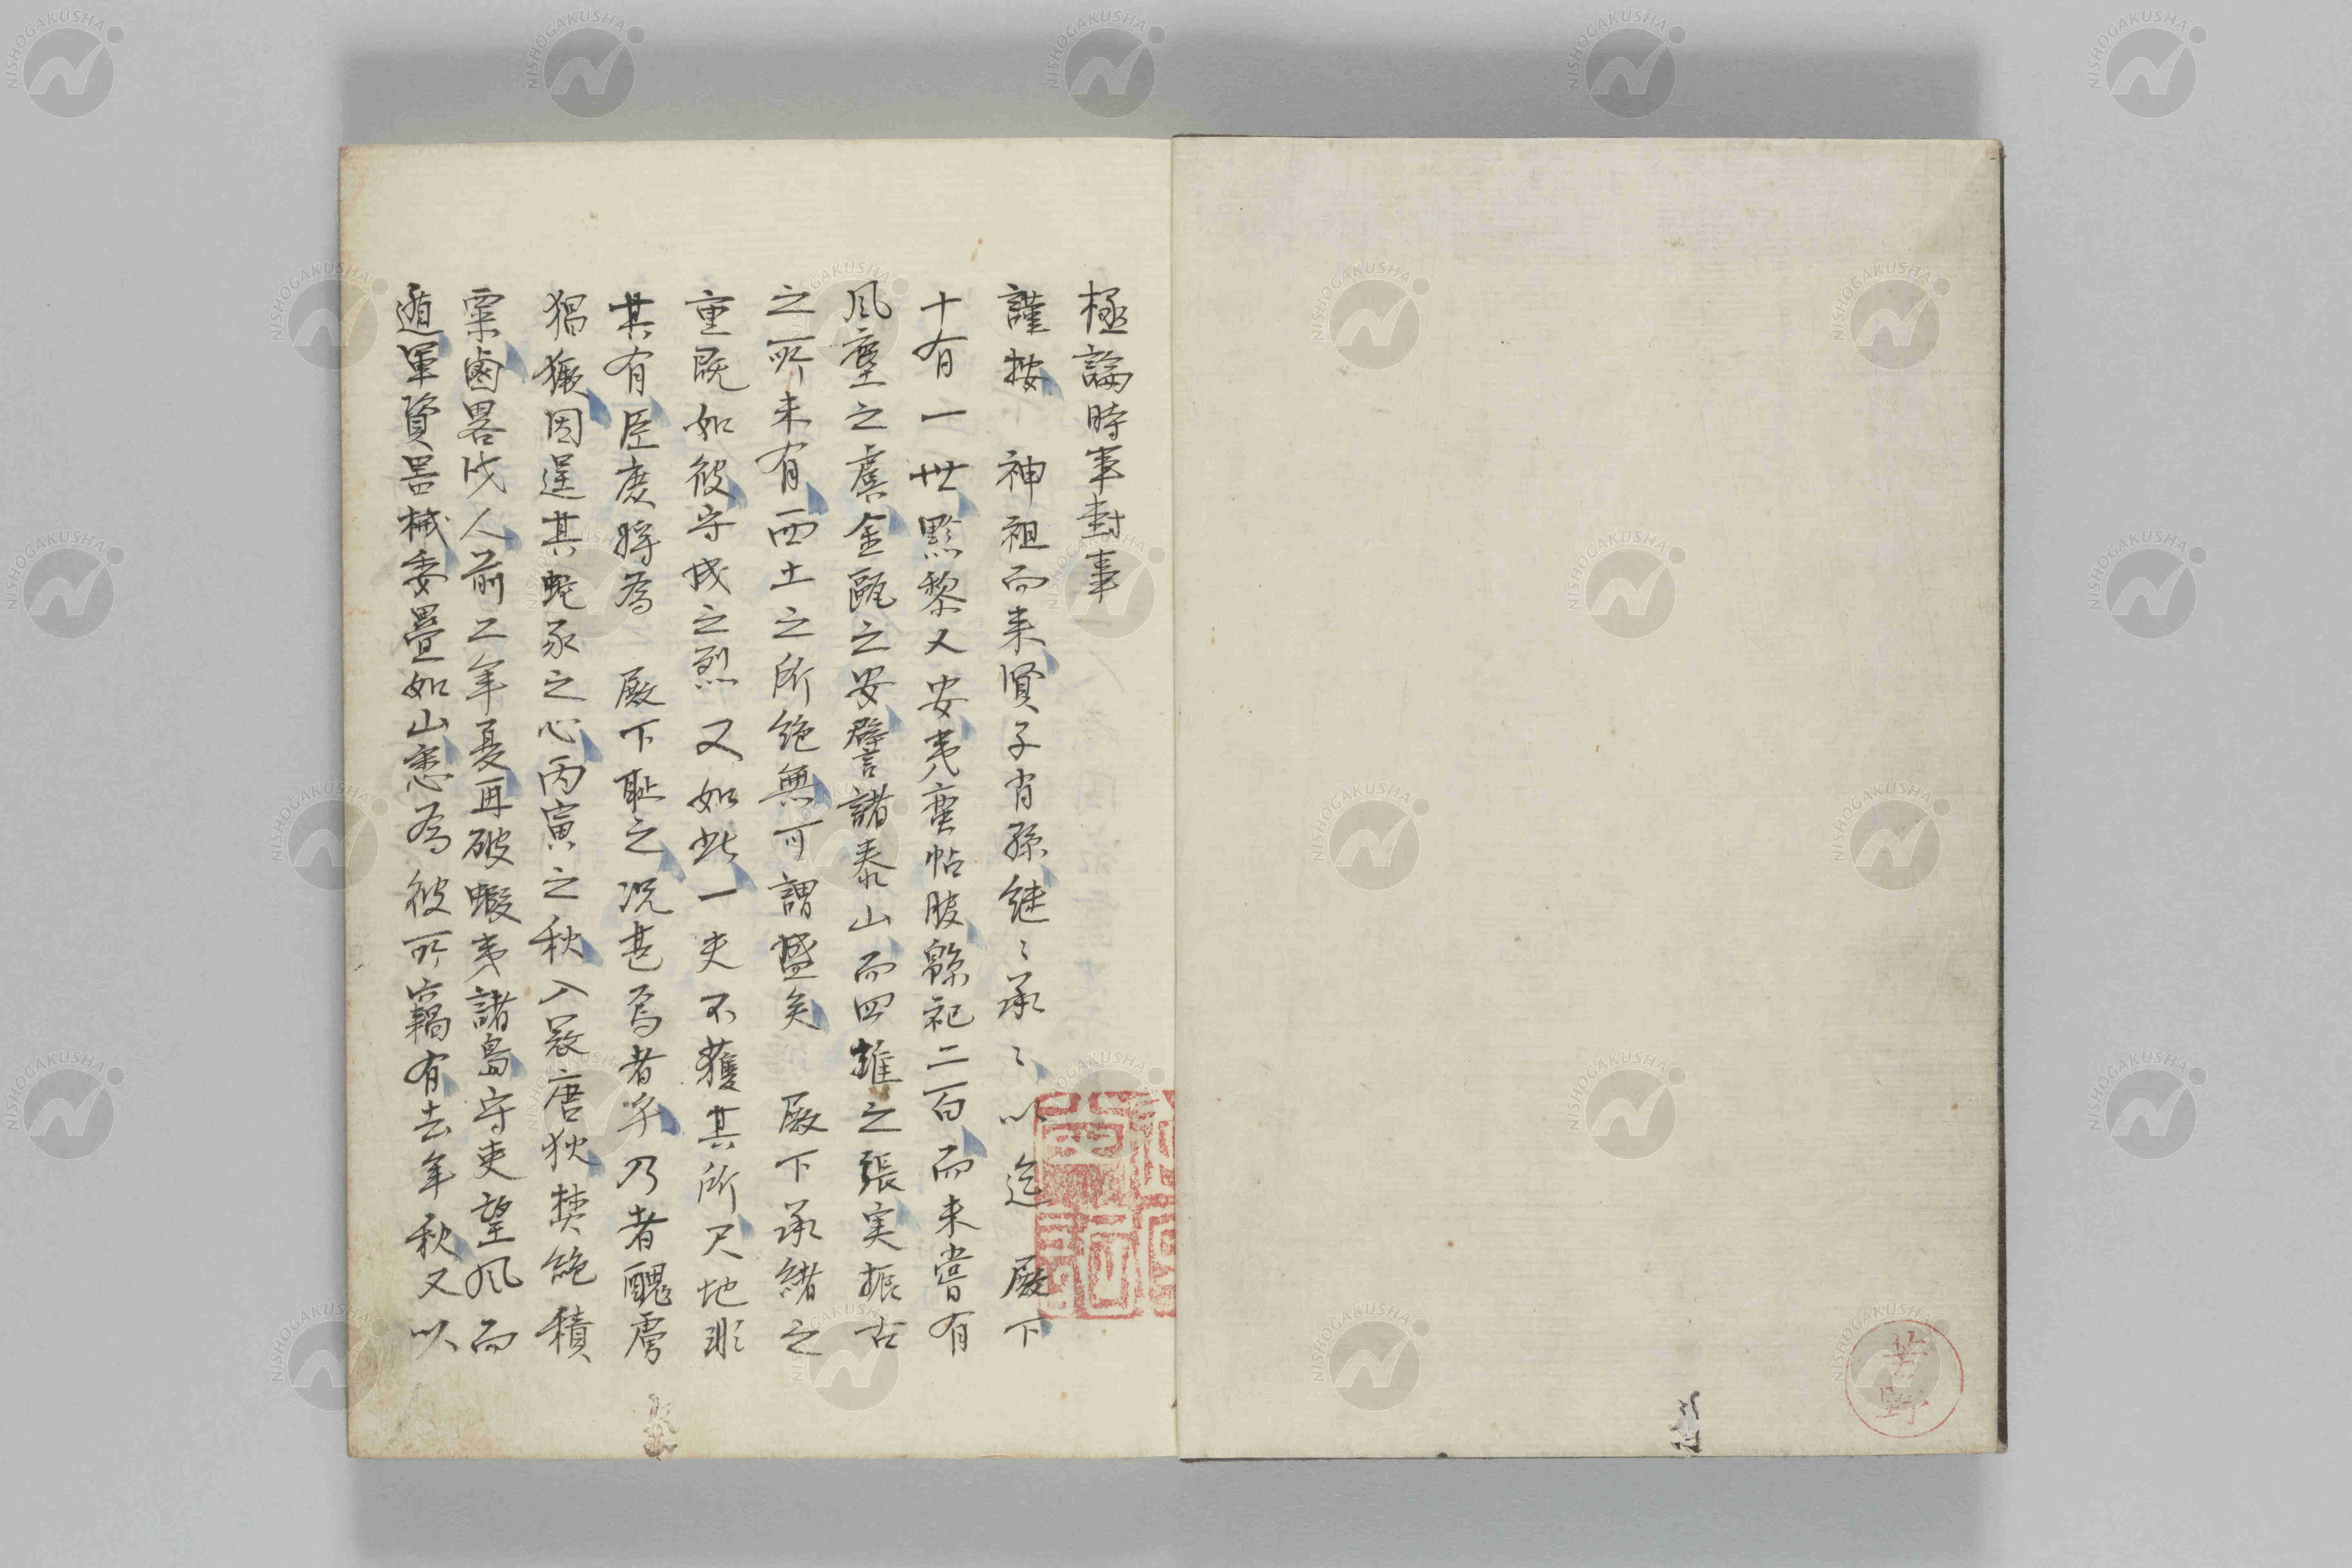 極論時事封事
謹按　神祖而来賢子肖孫継〻承〻以迄　殿下
十有一世黔黎又安夷蛮帖服緜祀二百而未嘗有
風塵之虞金甌之安譬諸泰山而四雄之張実振古
之所未有西土之所絶無可謂盛矣　殿下承緒之
重既如彼守成之烈又如此一夫不獲其所尺地非
其有臣庶将為　殿下恥之况甚焉者乎乃者醜虜
猖獗因逞其蛇豕之心丙寅之秋入寇唐狄焚絶積
粟鹵畧戍人前二年夏再破蝦夷諸島守吏望風而
遁軍資器械委畳如山悉為彼所竊有去年秋又以